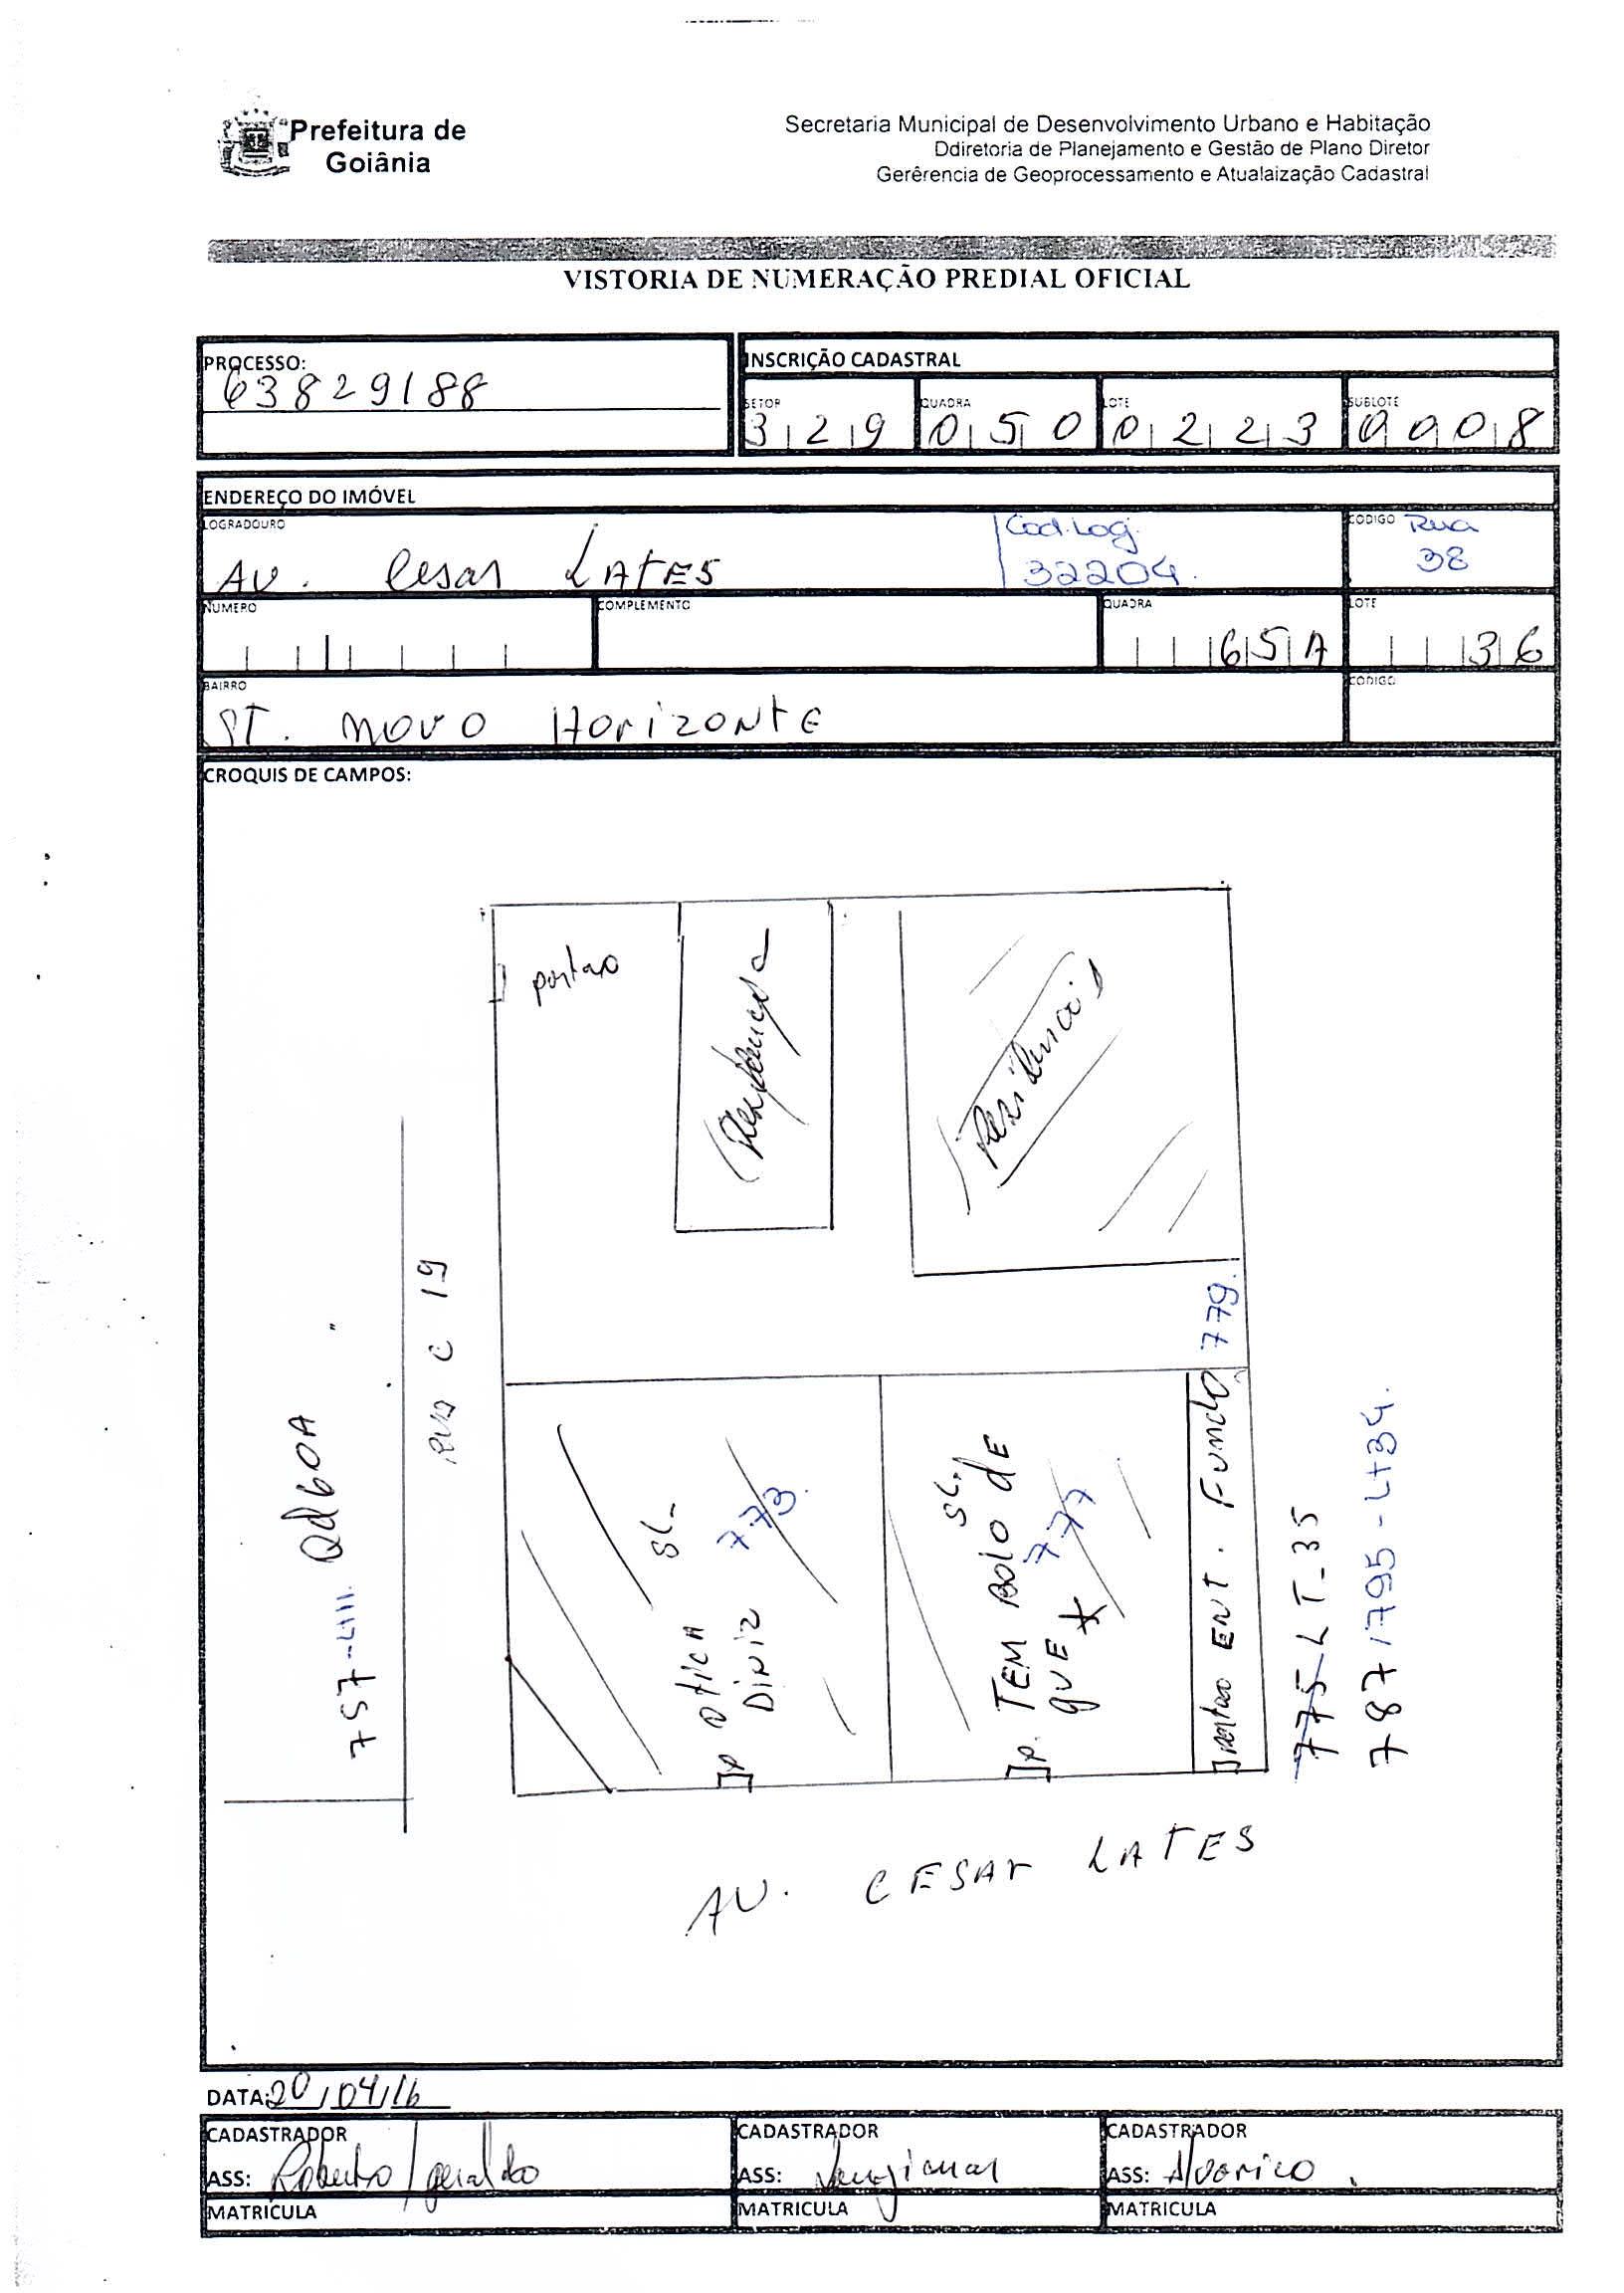 Prefeitura de
Goiânia
Secretaria Municipal de Desenvolvimento Urbano e Habitação
Ddiretoria de Planejamento e Gestão de Plano Diretor
Gerêrencia de Geoprocessamento e Atualaização Cadastral
VISTORIA DE NUMERAÇÃO PREDIAL OFICIAL
PROCESSO:
63829188
INSCRIÇÃO CADASTRAL
SETOR QUADRA LOTE SUBLOTE
329 050 0223 0008
ENDEREÇO DO IMÓVEL
LOGRADOURO
AV. Cesar LATES
Cod.Log.
32204.
CODIGO Rua
38
NUMERO COMPLEMENTO QUADRA LOTE
65A 36
BAIRRO CODIGO
ST. NOVO HorizontE
CROQUIS DE CAMPOS:
portao
Residencial
779.
RUA C 19
Qd60A
757-
SL-
773.
p otica
Diniz
SL.
P. TEM Bolo dE
QUE
777
portao ENT. Fundo
775 LT-35
787/795-Lt34.
AV. CESAr LATES
DATA: 20/04/16
CADASTRADOR CADASTRADOR CADASTRADOR
ASS: Roberto/geraldo ASS: ASS:
MATRICULA MATRICULA MATRICULA